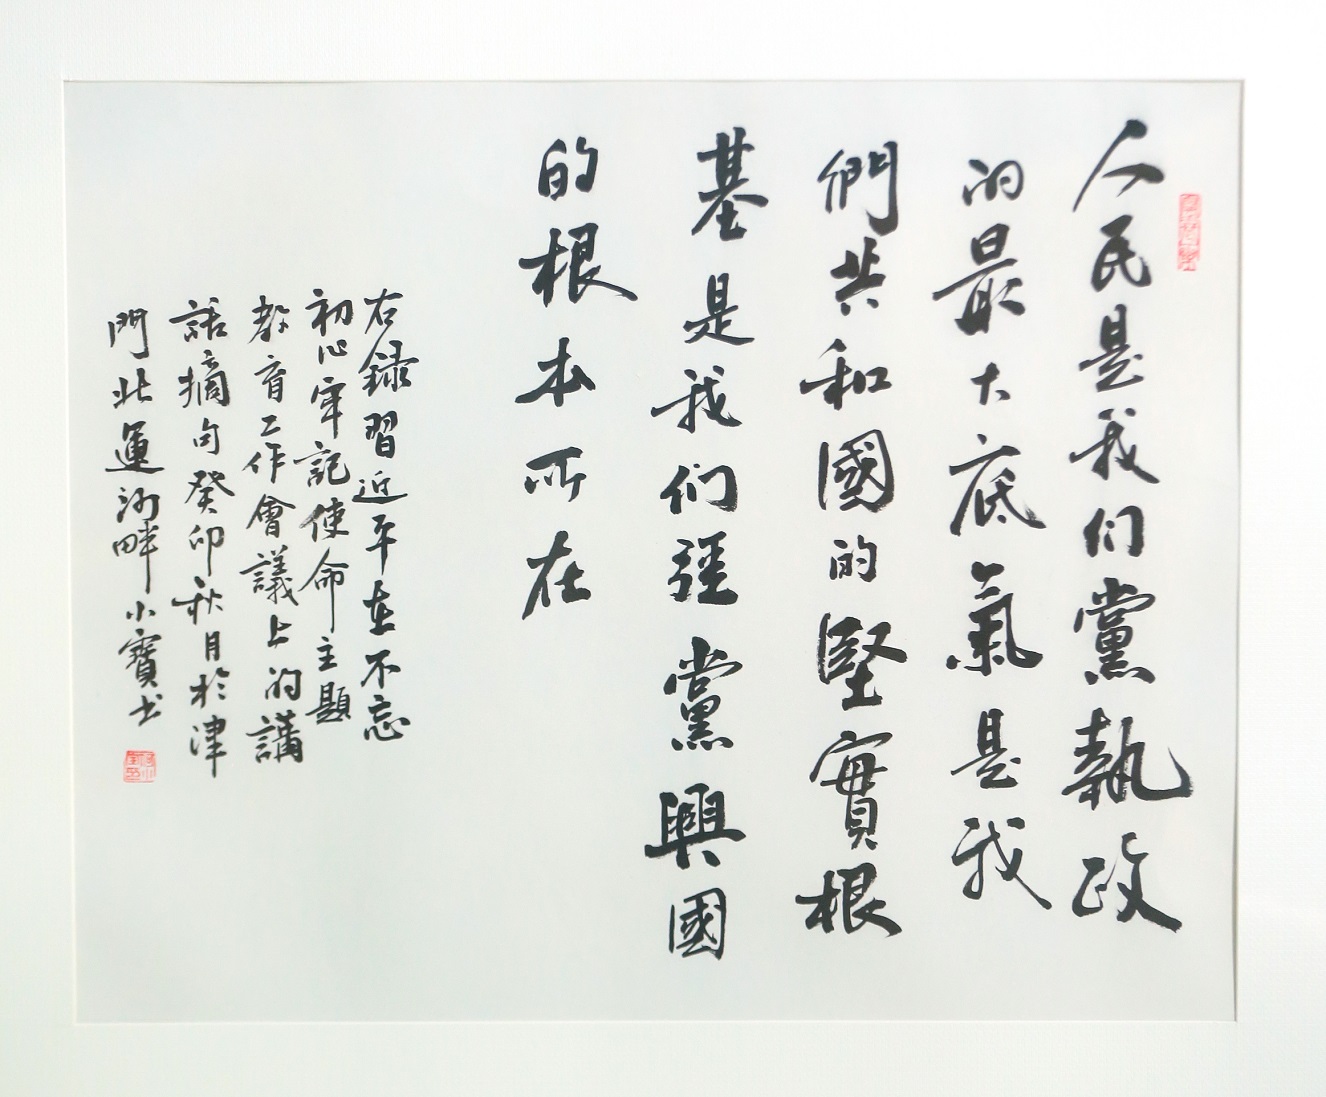 人民是我们黨執政
的最大底氣是我
們共和國的堅實根
基是我们强黨興國
的根本所在
右録習近平在不忘
初心牢記使命主題
教育工作會議上的講
話摘句癸卯秋月於津
門北運河畔小寳书